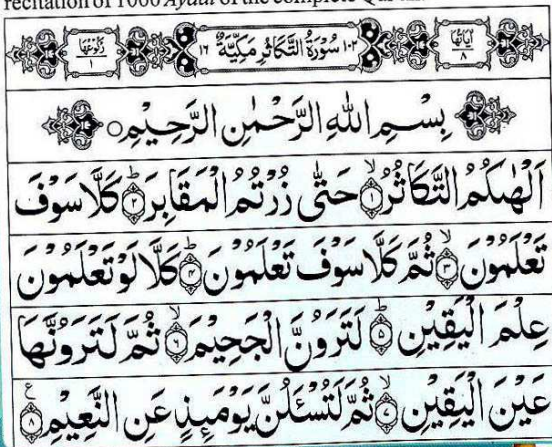 recitation of 1000 Ayaat of the complete
اٰيَاتُهَا ٨ ١٠٢ سُوْرَةُ التَّكَاثُرِ مَكِّيَّةٌ ١٦ رُكُوْعُهَا ١
بِسْمِ اللهِ الرَّحْمٰنِ الرَّحِيْمِ
اَلْهٰىكُمُ التَّكَاثُرُ ۙ‏﴿١﴾ حَتّٰى زُرْتُمُ الْمَقَابِرَ ؕ‏﴿٢﴾ كَلَّا سَوْفَ
تَعْلَمُوْنَ ۙ‏﴿٣﴾ ثُمَّ كَلَّا سَوْفَ تَعْلَمُوْنَ ؕ‏﴿٤﴾ كَلَّا لَوْ تَعْلَمُوْنَ
عِلْمَ الْيَقِيْنِ ؕ‏﴿٥﴾ لَتَرَوُنَّ الْجَحِيْمَ ۙ‏﴿٦﴾ ثُمَّ لَتَرَوُنَّهَا
عَيْنَ الْيَقِيْنِ ۙ‏﴿٧﴾ ثُمَّ لَتُسْـَٔلُنَّ يَوْمَىِٕذٍ عَنِ النَّعِيْمِ ﴿٨﴾ ع